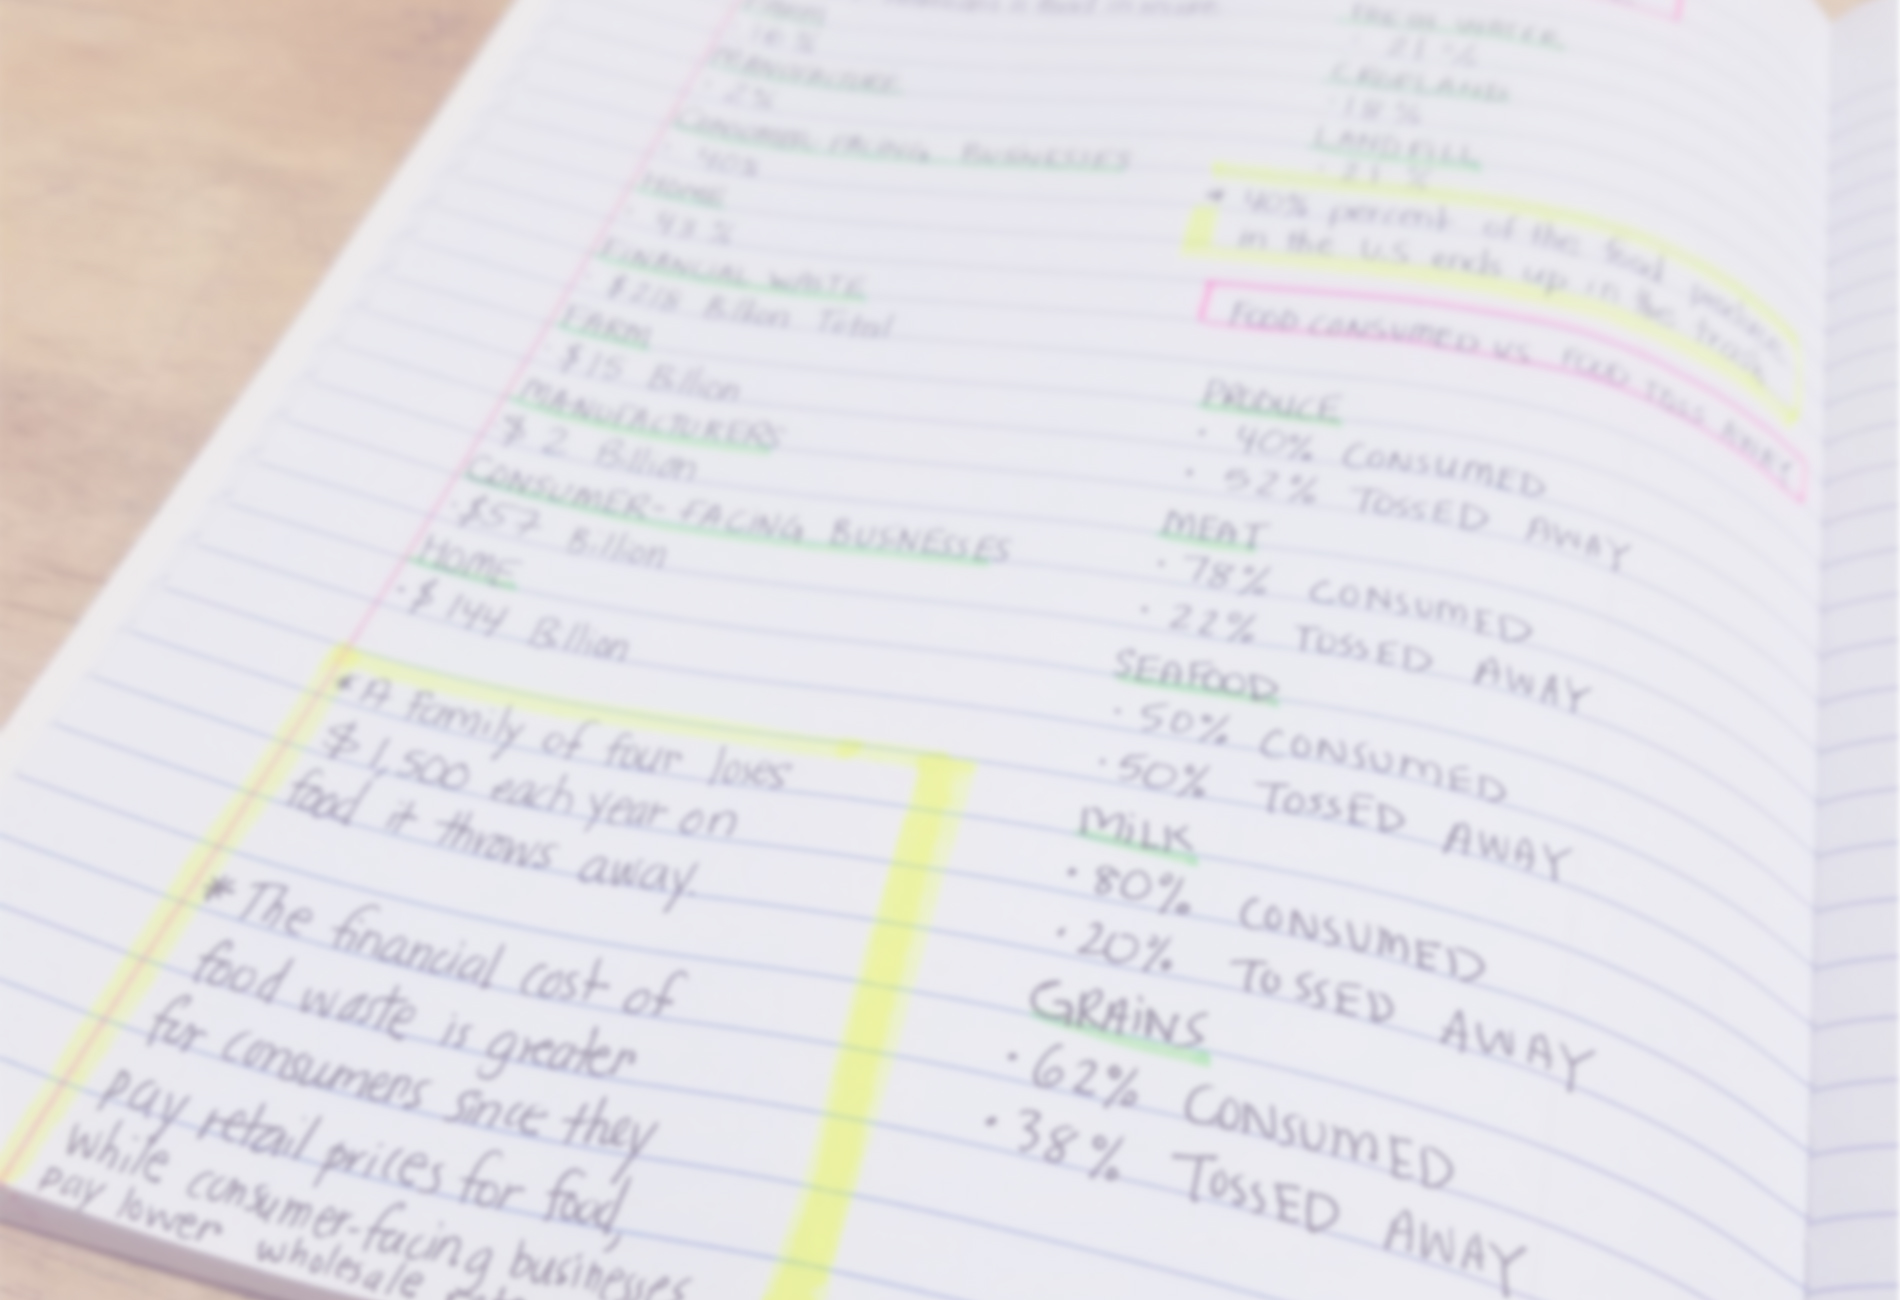 16%
MANUFACTURE
· 2%
CONSUMER FACING BUSINESSES
40%
HOME
· 42%
FINANCIAL WASTE
· $218 Billion Total
FARM
· $15 Billion
MANUFACTURERS
$ 2 Billion
CONSUMER-FACING BUSINESSES
· $57 Billion
HOME
· $ 144 Billion
* A family of four loses
$1,500 each year on
food it throws away.
* The financial cost of
food waste is greater
for consumers since they
pay retail prices for food,
while consumer-facing businesses
pay lower wholesale
FRESH WATER
· 21%
CROPLAND
· 18%
LANDFILL
· 21%
* 40% percent of the food
in the U.S ends up in the trash
FOOD CONSUMED VS FOOD TOSS AWAY
PRODUCE
· 40% CONSUMED
· 52% TOSSED AWAY
MEAT
· 78% CONSUMED
· 22% TOSSED AWAY
SEAFOOD
· 50% CONSUMED
· 50% TOSSED AWAY
MiLK
· 80% CONSUMED
· 20% TOSSED AWAY
GRAiNS
· 62% CONSUMED
· 38% TOSSED AWAY